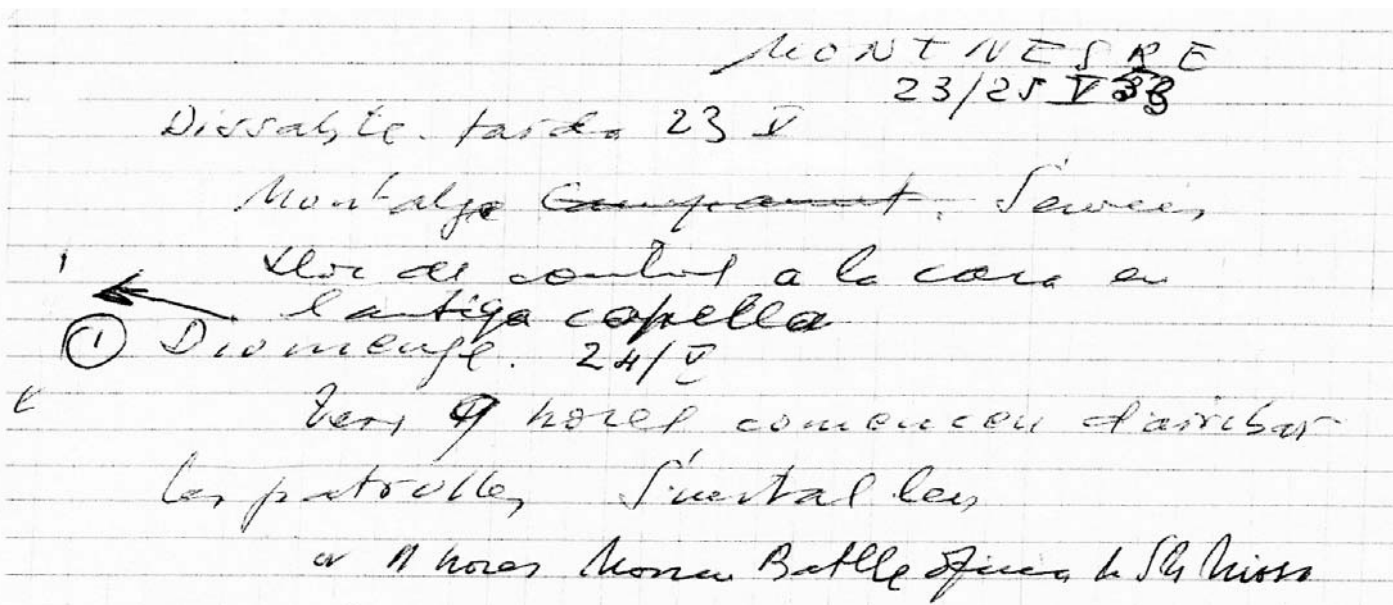 MONTNEGRE
23/25 V 33
Dissabte tarda 23 V
Muntatge Campament. Serveis
Lloc de control a la casa en
l'antiga capella
① Diumenge. 24/V
Vers 9 hores comencen d'arribar
les patrulles S'instal·len
a 11 hores Mossen Batlle oficia la Sta Missa